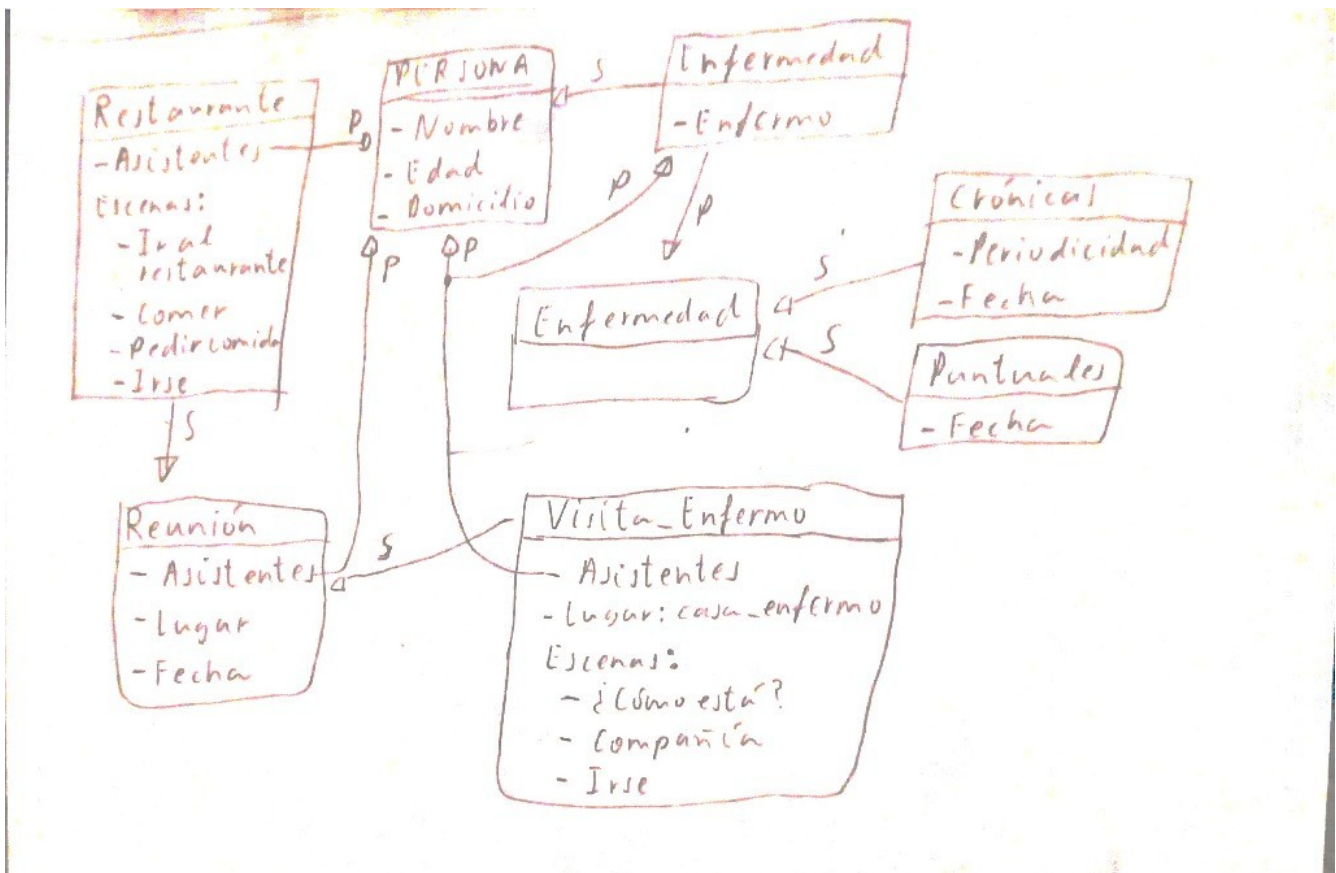 Restaurante
- Asistentes
Escenas:
- Ir al
restaurante
- Comer
- Pedir comida
- Irse
S
P
PERSONA
- Nombre
- Edad
- Domicilio
S
Enfermedad
- Enfermo
P
P
P
P
Enfermedad
S
S
Crónicas
- Periodicidad
- Fecha
Puntuales
- Fecha
Reunión
- Asistentes
- Lugar
- Fecha
S
Visita_Enfermo
- Asistentes
- Lugar: casa_enfermo
Escenas:
- ¿Cómo está?
- Compañía
- Irse